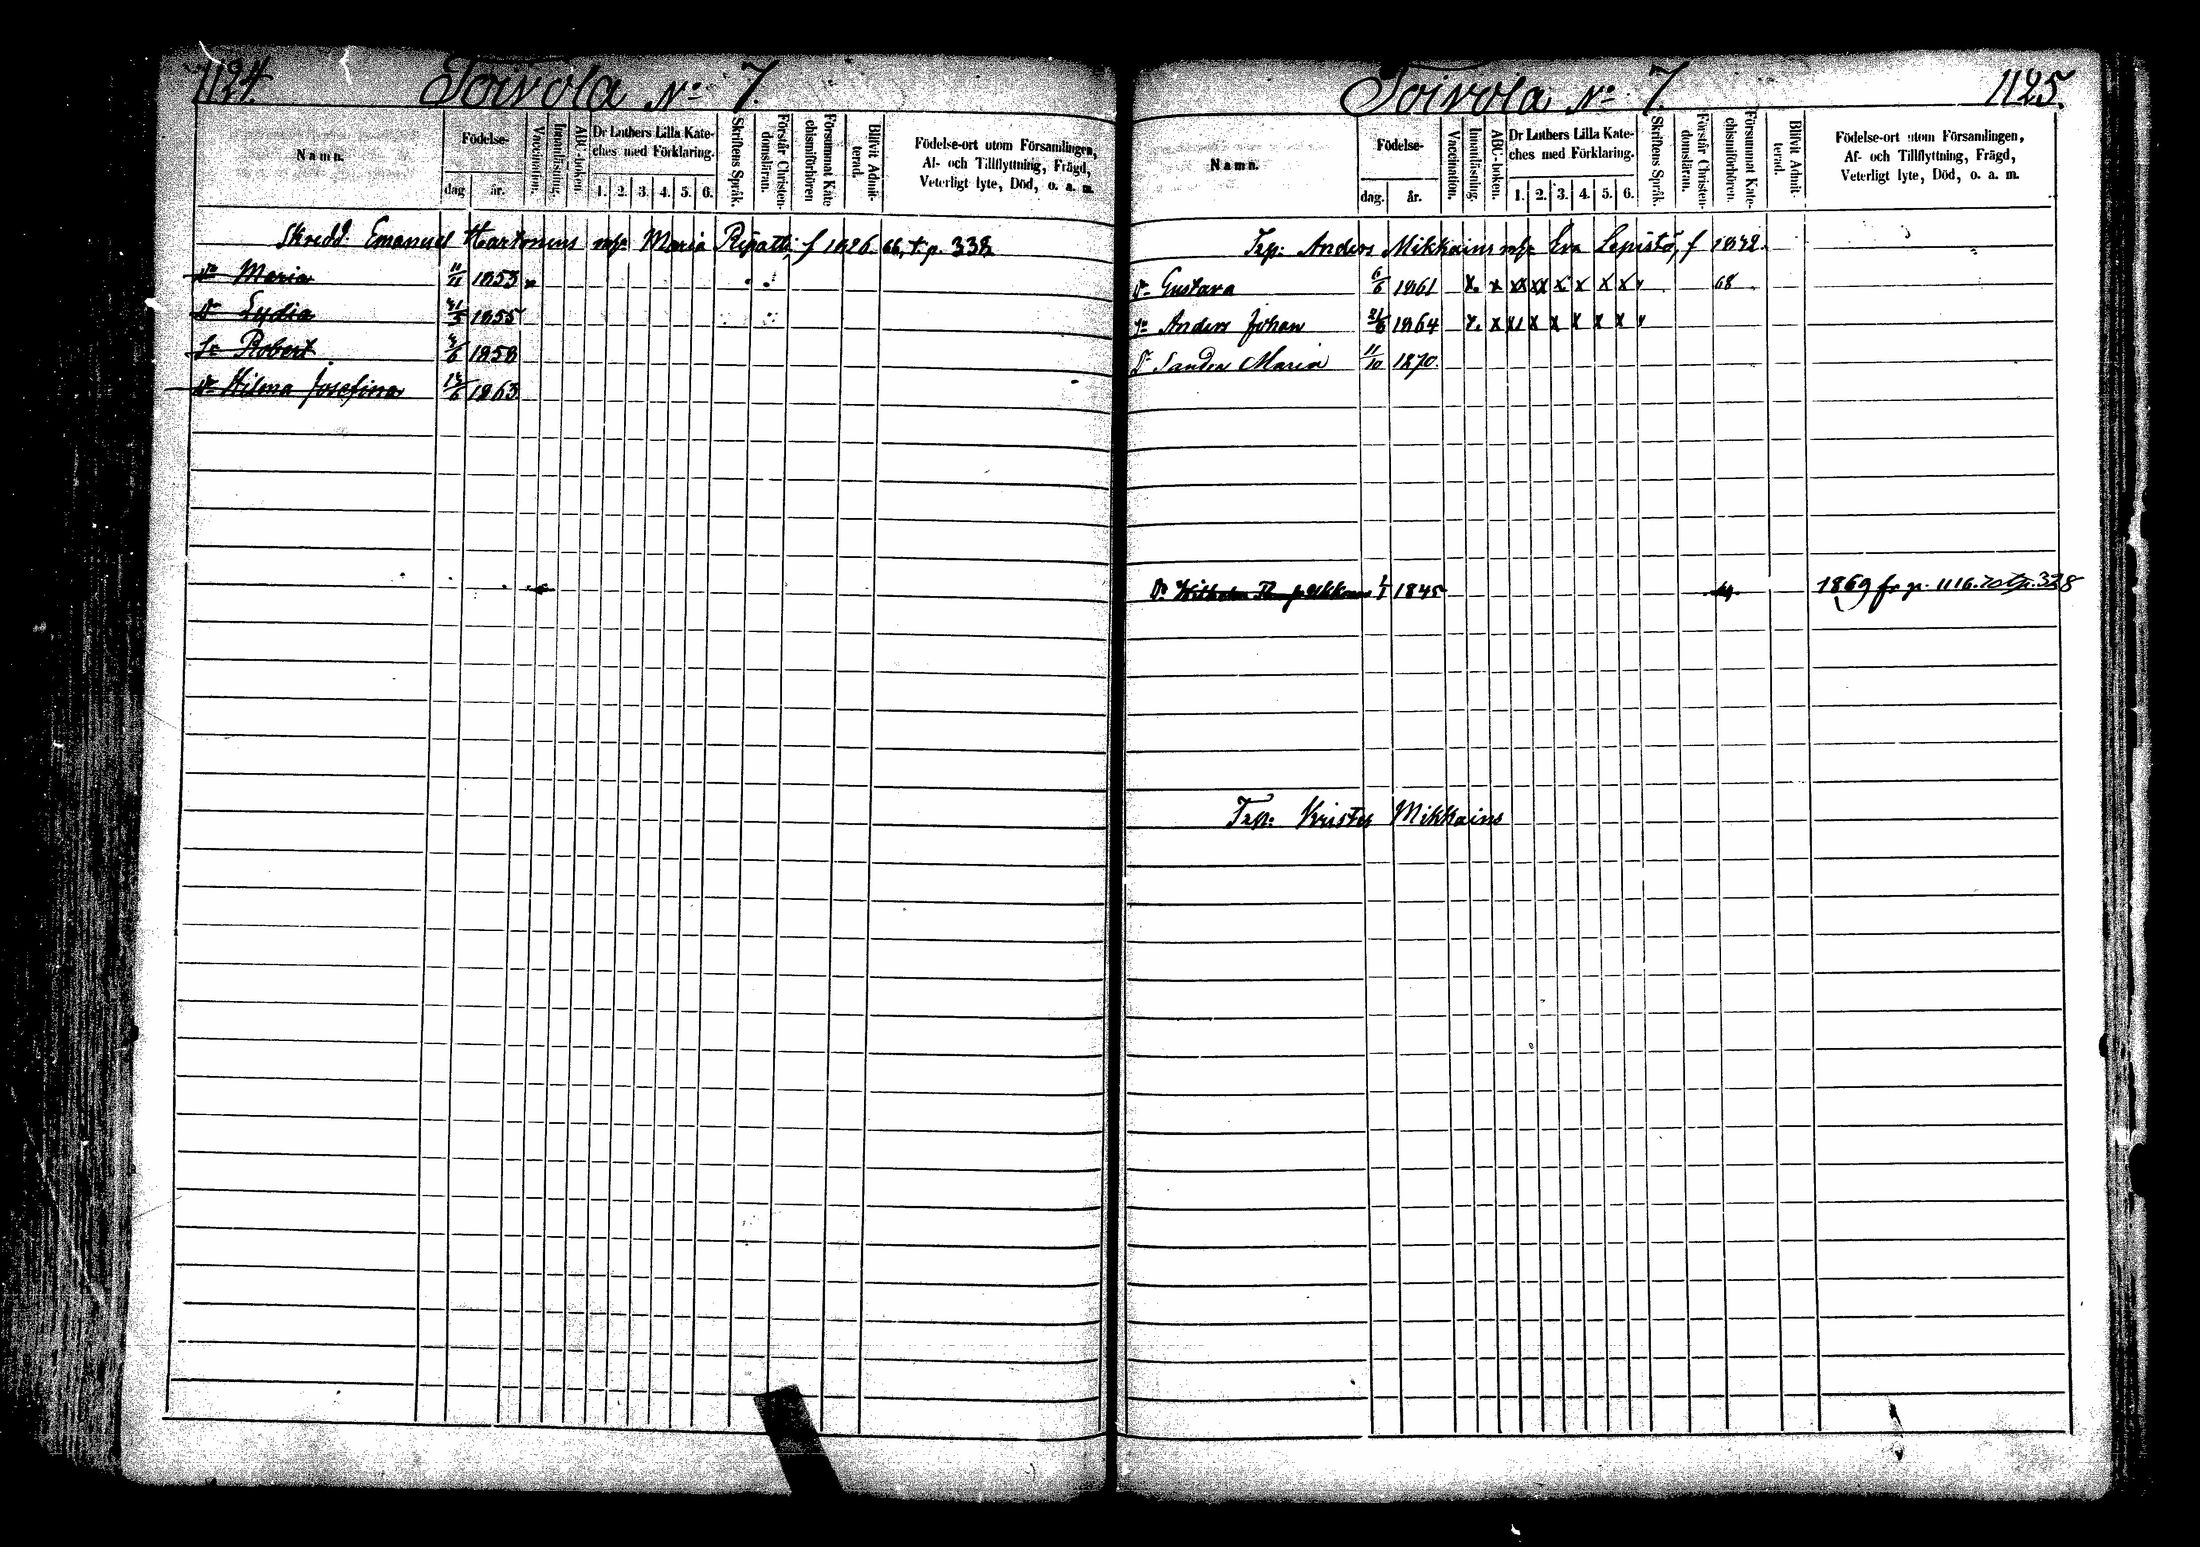 1124. Toivola No 7.
Namn.
Födelse-
dag
år.
Vaccination.
Innanläsning.
ABC-boken.
Dr Luthers Lilla Kate-
ches med Förklaring.
1. 2. 3. 4. 5. 6.
Skriftens Språk.
Förstår Christen-
domsläran.
Försummat Kate
chismiförhören
Blifvit Admit-
terad.
Födelse-ort utom Församlingen,
Af- och Tillflyttning, Frägd,
Veterligt lyte, Död, o. a. m.
Skredd. Emanuel Hartonens Maria Ripatti, f 1826. 66, t. p. 338
Dr Maria 11/11 1853
Dr Lydia 1855
Sr Robert 1858
Dr Hilma Josefina 1863
Toivola No 7. 1125.
Namn.
Födelse-
dag.
år.
Vaccination.
Innanläsning.
ABC-boken.
Dr Luthers Lilla Kate-
ches med Förklaring.
1. 2. 3. 4. 5. 6.
Skriftens Språk.
Förstår Christen-
domsläran.
Försummat Kate-
chismiförhören.
Blifvit Admit-
terad.
Födelse-ort utom Församlingen,
Af- och Tillflyttning, Frägd,
Veterligt lyte, Död, o. a. m.
Inp: Anders Mikkains Eva Lepistö, f 1842.
Dr Gustava 6/6 1861 x x xx xx x x x x 68
Sr Anders Johan 1864 x x x x x x x x
Dr Sandra Maria 11/10 1870.
Dr 1/1 1845 1869 fr p. 1116. 338
Inp: Krister Mikkains